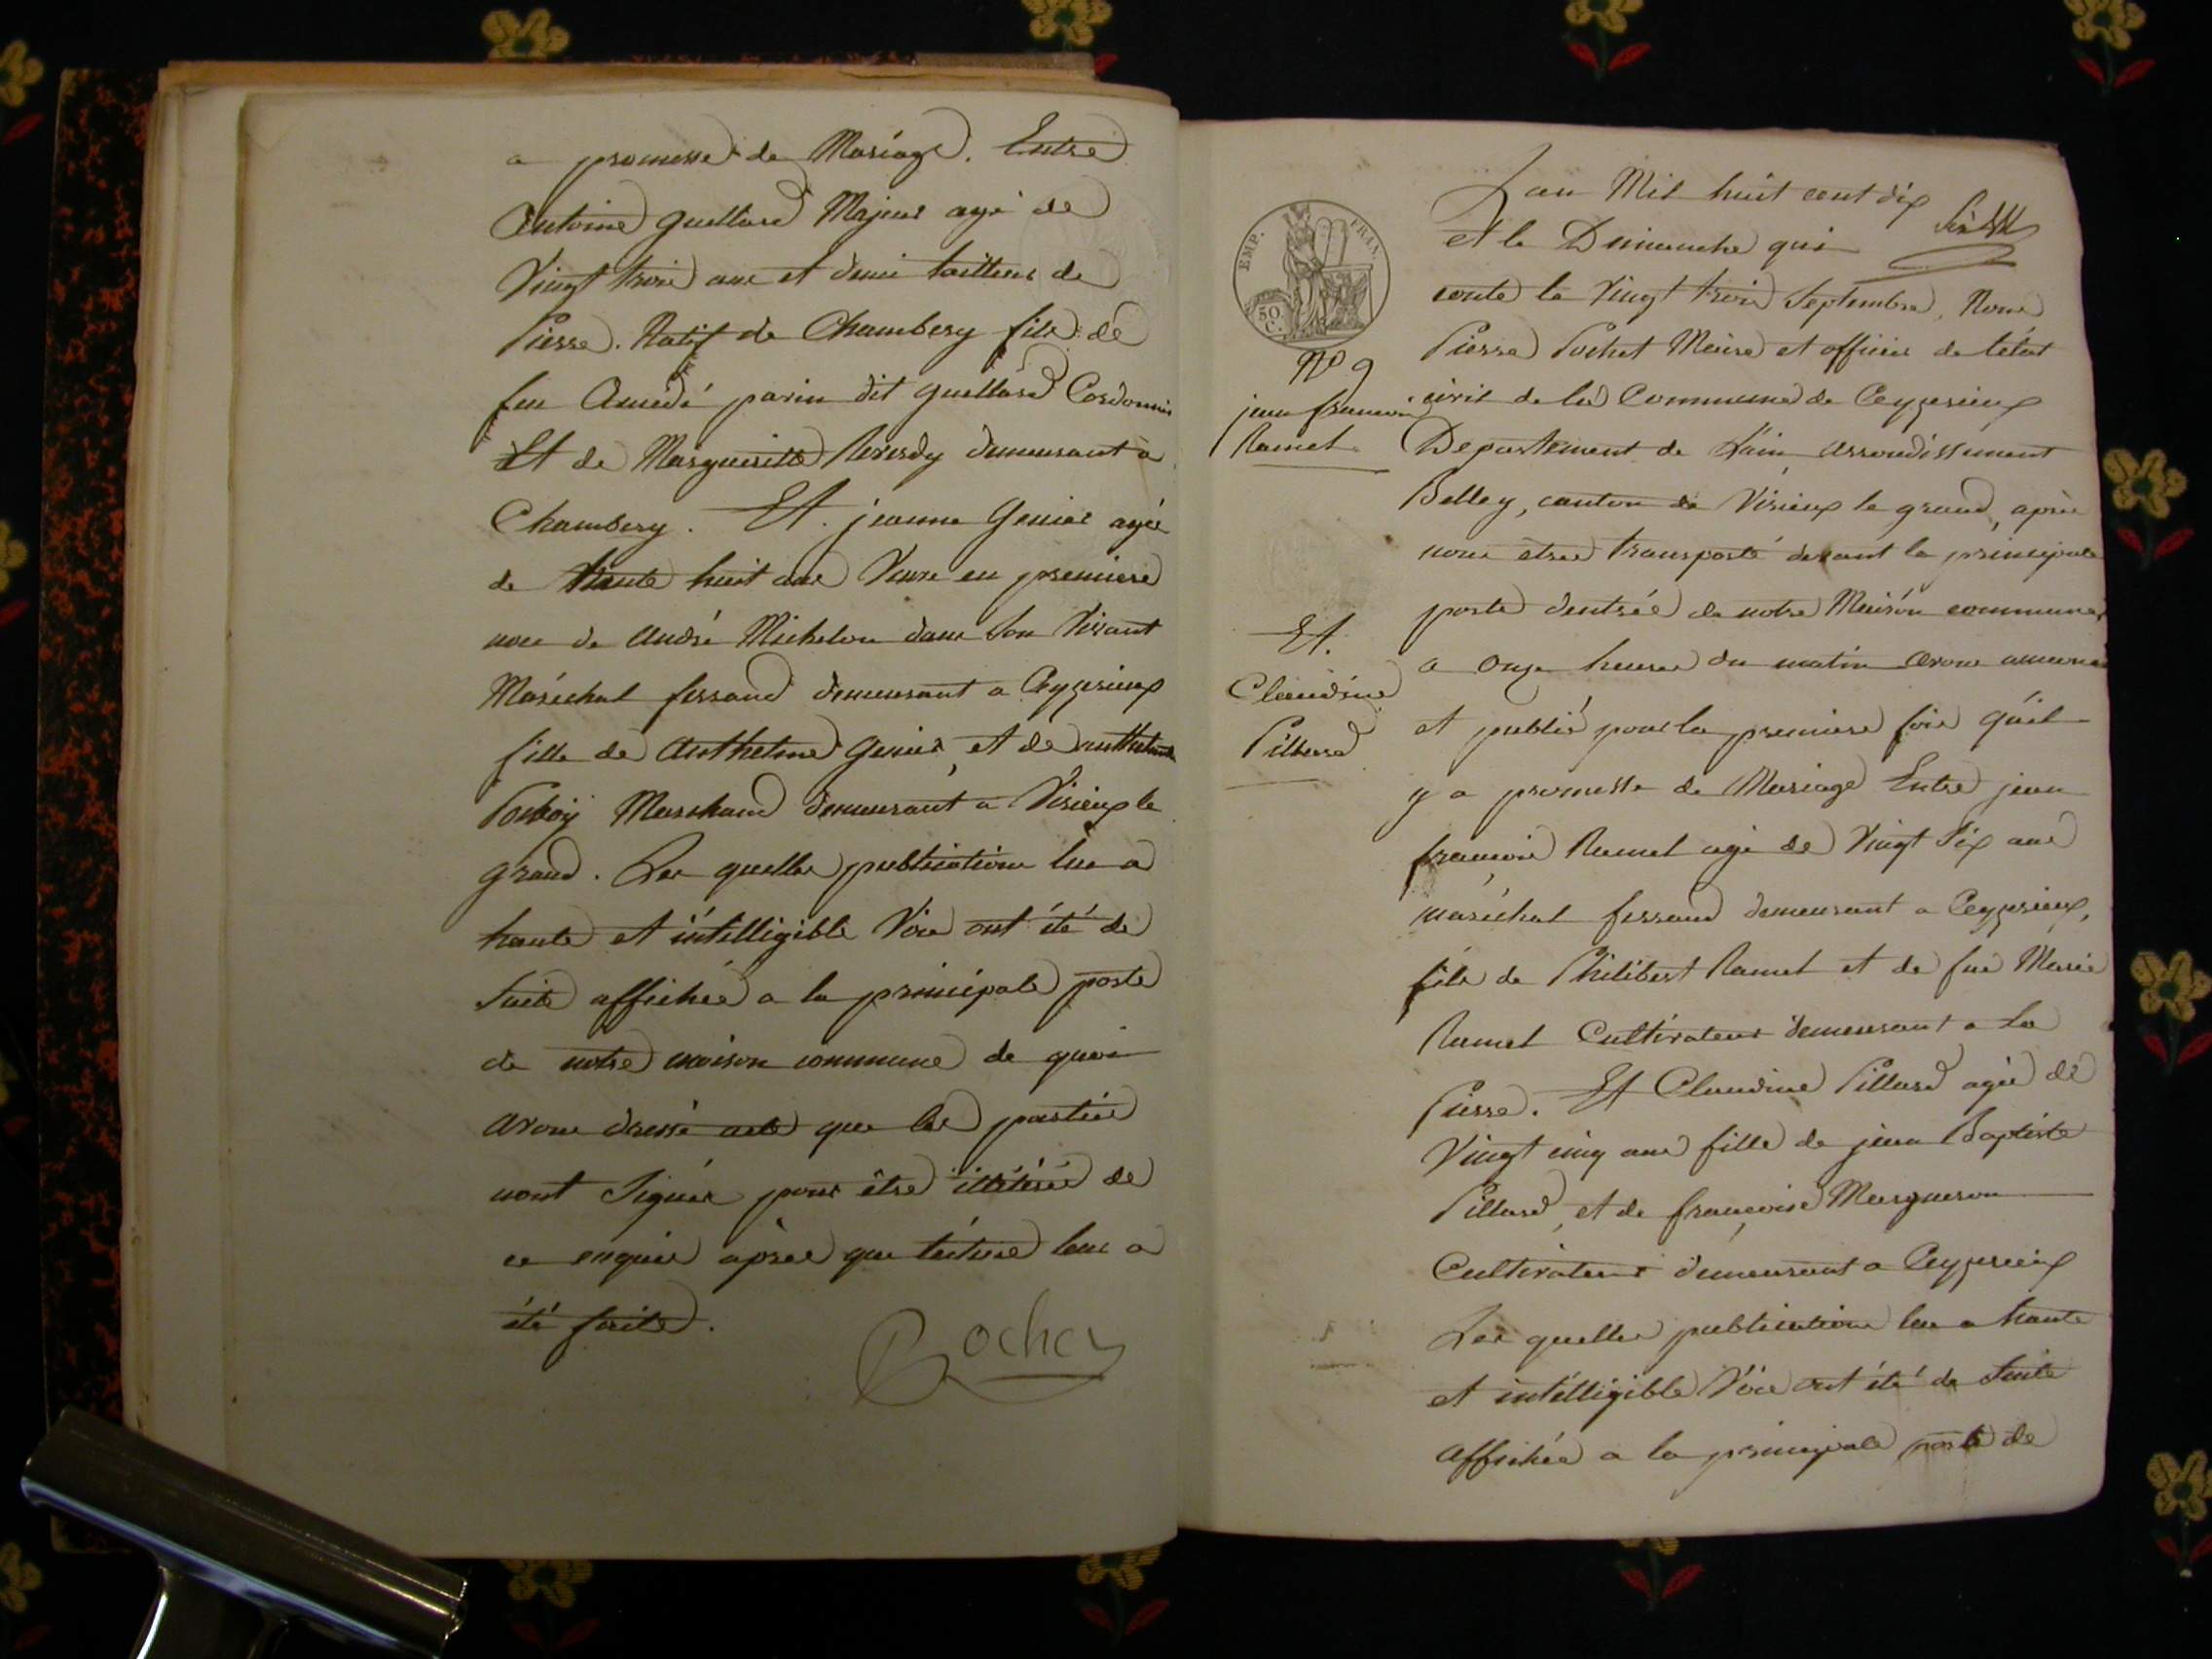 a promesse de Mariage. Entre
Antoine guillard Majeur agé de
Vingt trois ans et demi tailleur de
Pierre. Natif de Chambery fils de
feu Amedé parin dit guillard Cordonnier
Et de Marguerite demeurant a
Chambery. Et. jeanne Genier agée
de trente huit ans Veuve en premiere
noce de André Michelon dans son Vivant
Maréchal ferrand demeurant a Ceyzerieux
fille de Anthelme Genier, et de anthelme
Marchand demeurant a Virieux le
grand. Les quelles publications lue a
haute et intelligible Voie ont été de
suite affichée a la principale porte
de notre maison commune de quoi
avons dressé acte que les parties
nont signée pour être illitérée de
ce enquis après que lecture leur a
été faite.
Pochet
EMP. FRAN.
50. C.
Lan Mil huit cent dix
et le Dimanche qui
conte le Vingt trois Septembre, Nous
Pierre Pochet Maire et officier de létat
civil de la Commune de Ceyzerieux
Departement de Lain, arrondissement
Belley, canton de Virieux le grand, après
nous être transporté devant la principale
porte dentrée de notre Maison commune
a onze heures du matin avons annoncé
et publié pour la premiere fois quil
y a promesse de Mariage Entre jean
françois Ramel agé de Vingt six ans
maréchal ferrand demeurant a Ceyzerieux,
fils de Philibert Ramel et de fue Marie
Ramel Cultivateur demeurant a la
Pierre. Et Claudine Pillard agée de
Vingt cinq ans fille de jean Baptiste
Pillard, et de françoise Margueron
Cultivateur demeurant a Ceyzerieux
Les quelles publications lue a haute
et intélligible Voie ont été de suite
affichée a la principale porte de
No 9
jean francois
Ramel
Et.
Claudine
Pillard